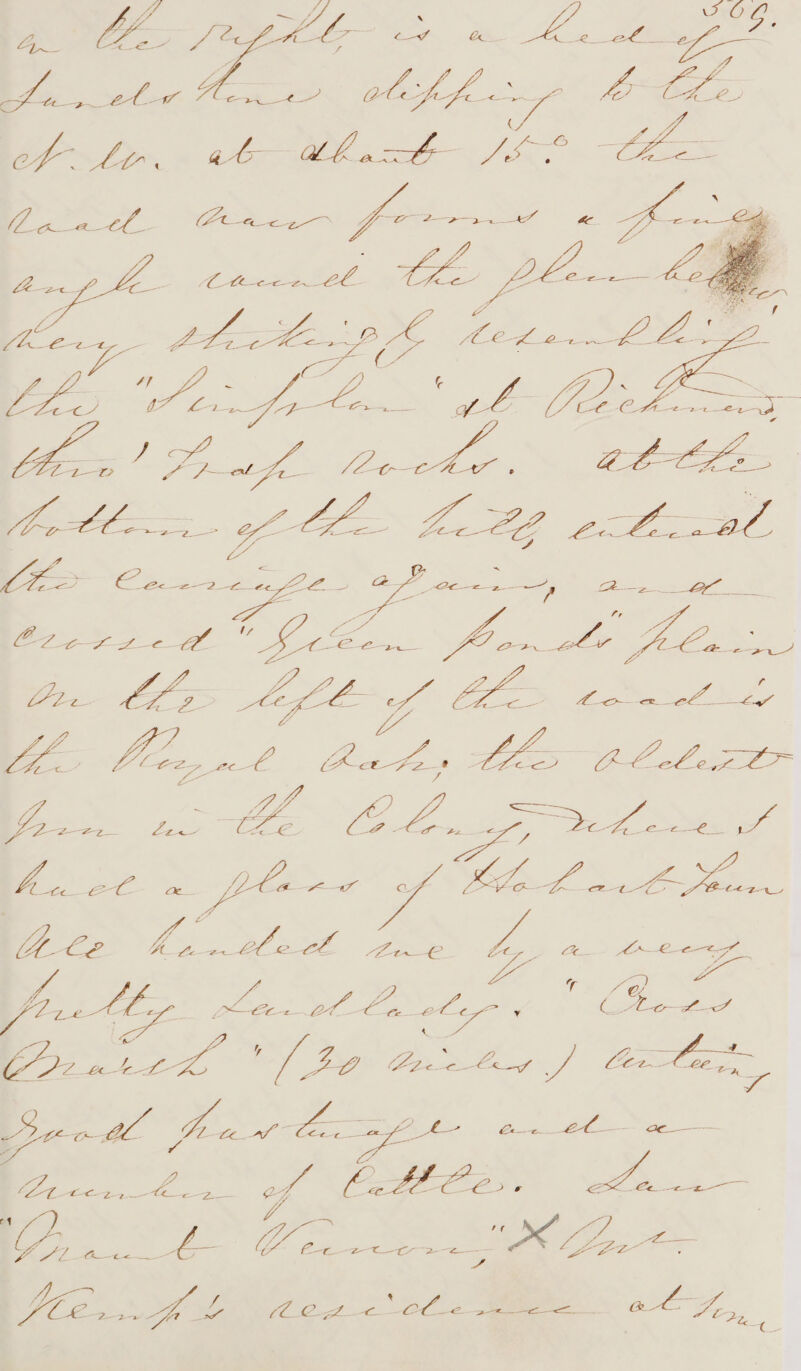 369.
on the right, is a bed of
Sandstone dipping to the
N. W. at about 15° the
road now forms a fine
angle round the glen below,
very strikingly resembling
the "Simplon" at Richmond,
thro' Trap rocks. At the
bottom of the hill, entered
the Carriage again, and
crossed "Green Ponds" plain
On the left of the road is
the Royal Oak; the oldest
Inn in the Colony, where I
had a glass of Hobart Town
Ale handed me by a very
pretty Landlady. "Cross
Marsh" (30 Miles) Contains
good pasturage and a
Number of Cattle. Saw
"Mount Vernon," X Mr.
Kemp's residence at some